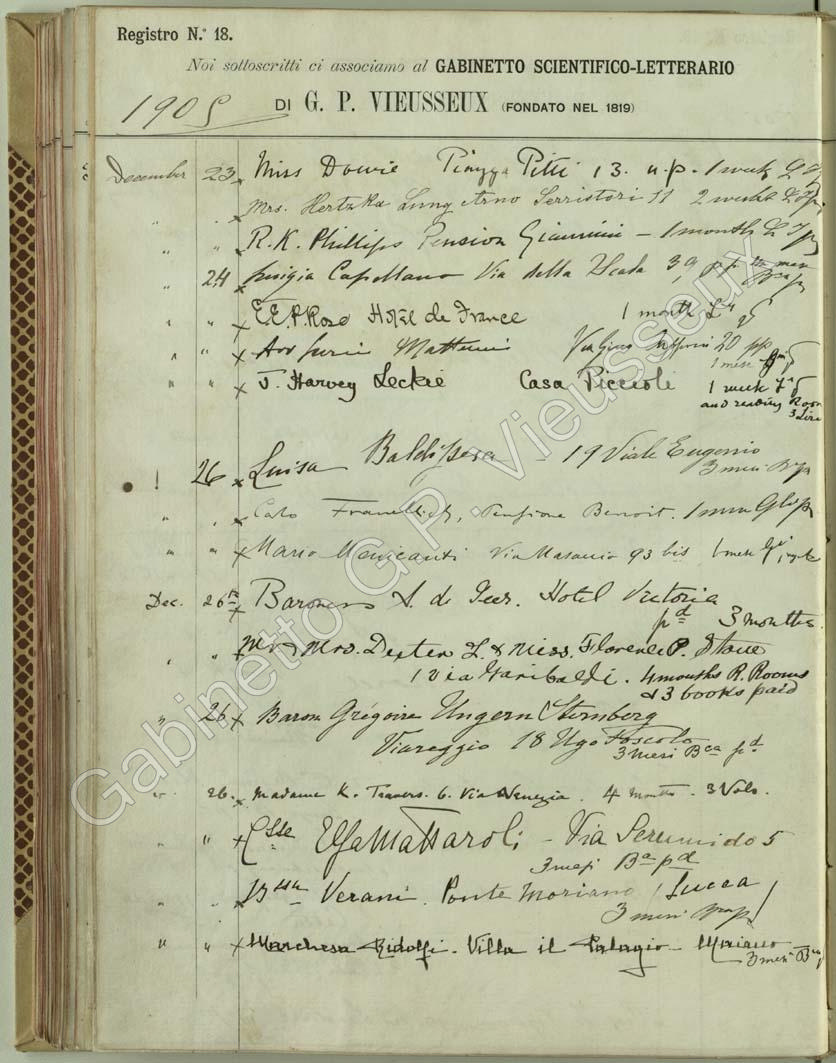 Registro N.° 18.
Noi sottoscritti ci associamo al GABINETTO SCIENTIFICO-LETTERARIO
1905 DI G. P. VIEUSSEUX (FONDATO NEL 1819)
December 23 Miss Dowie Piazza Pitti 13. u.p. 1 week
" " Mrs. Hertzka Lung Arno Serristori 11 2 weeks
" " R. K. Phillips Pension Giannini — 1 month
" 24 Luigia Capellano Via della Scala 39
" " E.E.P. Rose Hotel de France 1 month
" " Via Gino Capponi 20 pp
1 mese
" " J. Harvey Leckie Casa Piccioli 1 week
and reading Room
3 Lire
" 26 Luisa Baldissera – 19 Viale Eugenio
3 mesi
" " Pensione Benoit.
" " Mario Menicanti Via Masaccio 93 bis 1 mese
Dec. 26th Baroness A. de Geer. Hotel Victoria
pd 3 months.
" " Mr & Mrs. Dexter L. & Miss. Florence P. Stone
1 via Garibaldi. 4 months R. Rooms
& 3 books paid
" 26 Baron Grégoire Ungern Sternberg
Viareggio 18 Ugo Foscolo
3 mesi Bca pd
" 26. Madame K. Travers. 6. Via Venezia. 4 months. 3 Vols.
" " Csse Elsa Mattaroli – Via Serumido 5
3 mesi Ba pd
" " Verani. Ponte Moriano / Lucca
3 mesi
" " Marchesa Ridolfi. Villa il Palagio – Moriano
3 mesi
Gabinetto G.P. Vieusseux